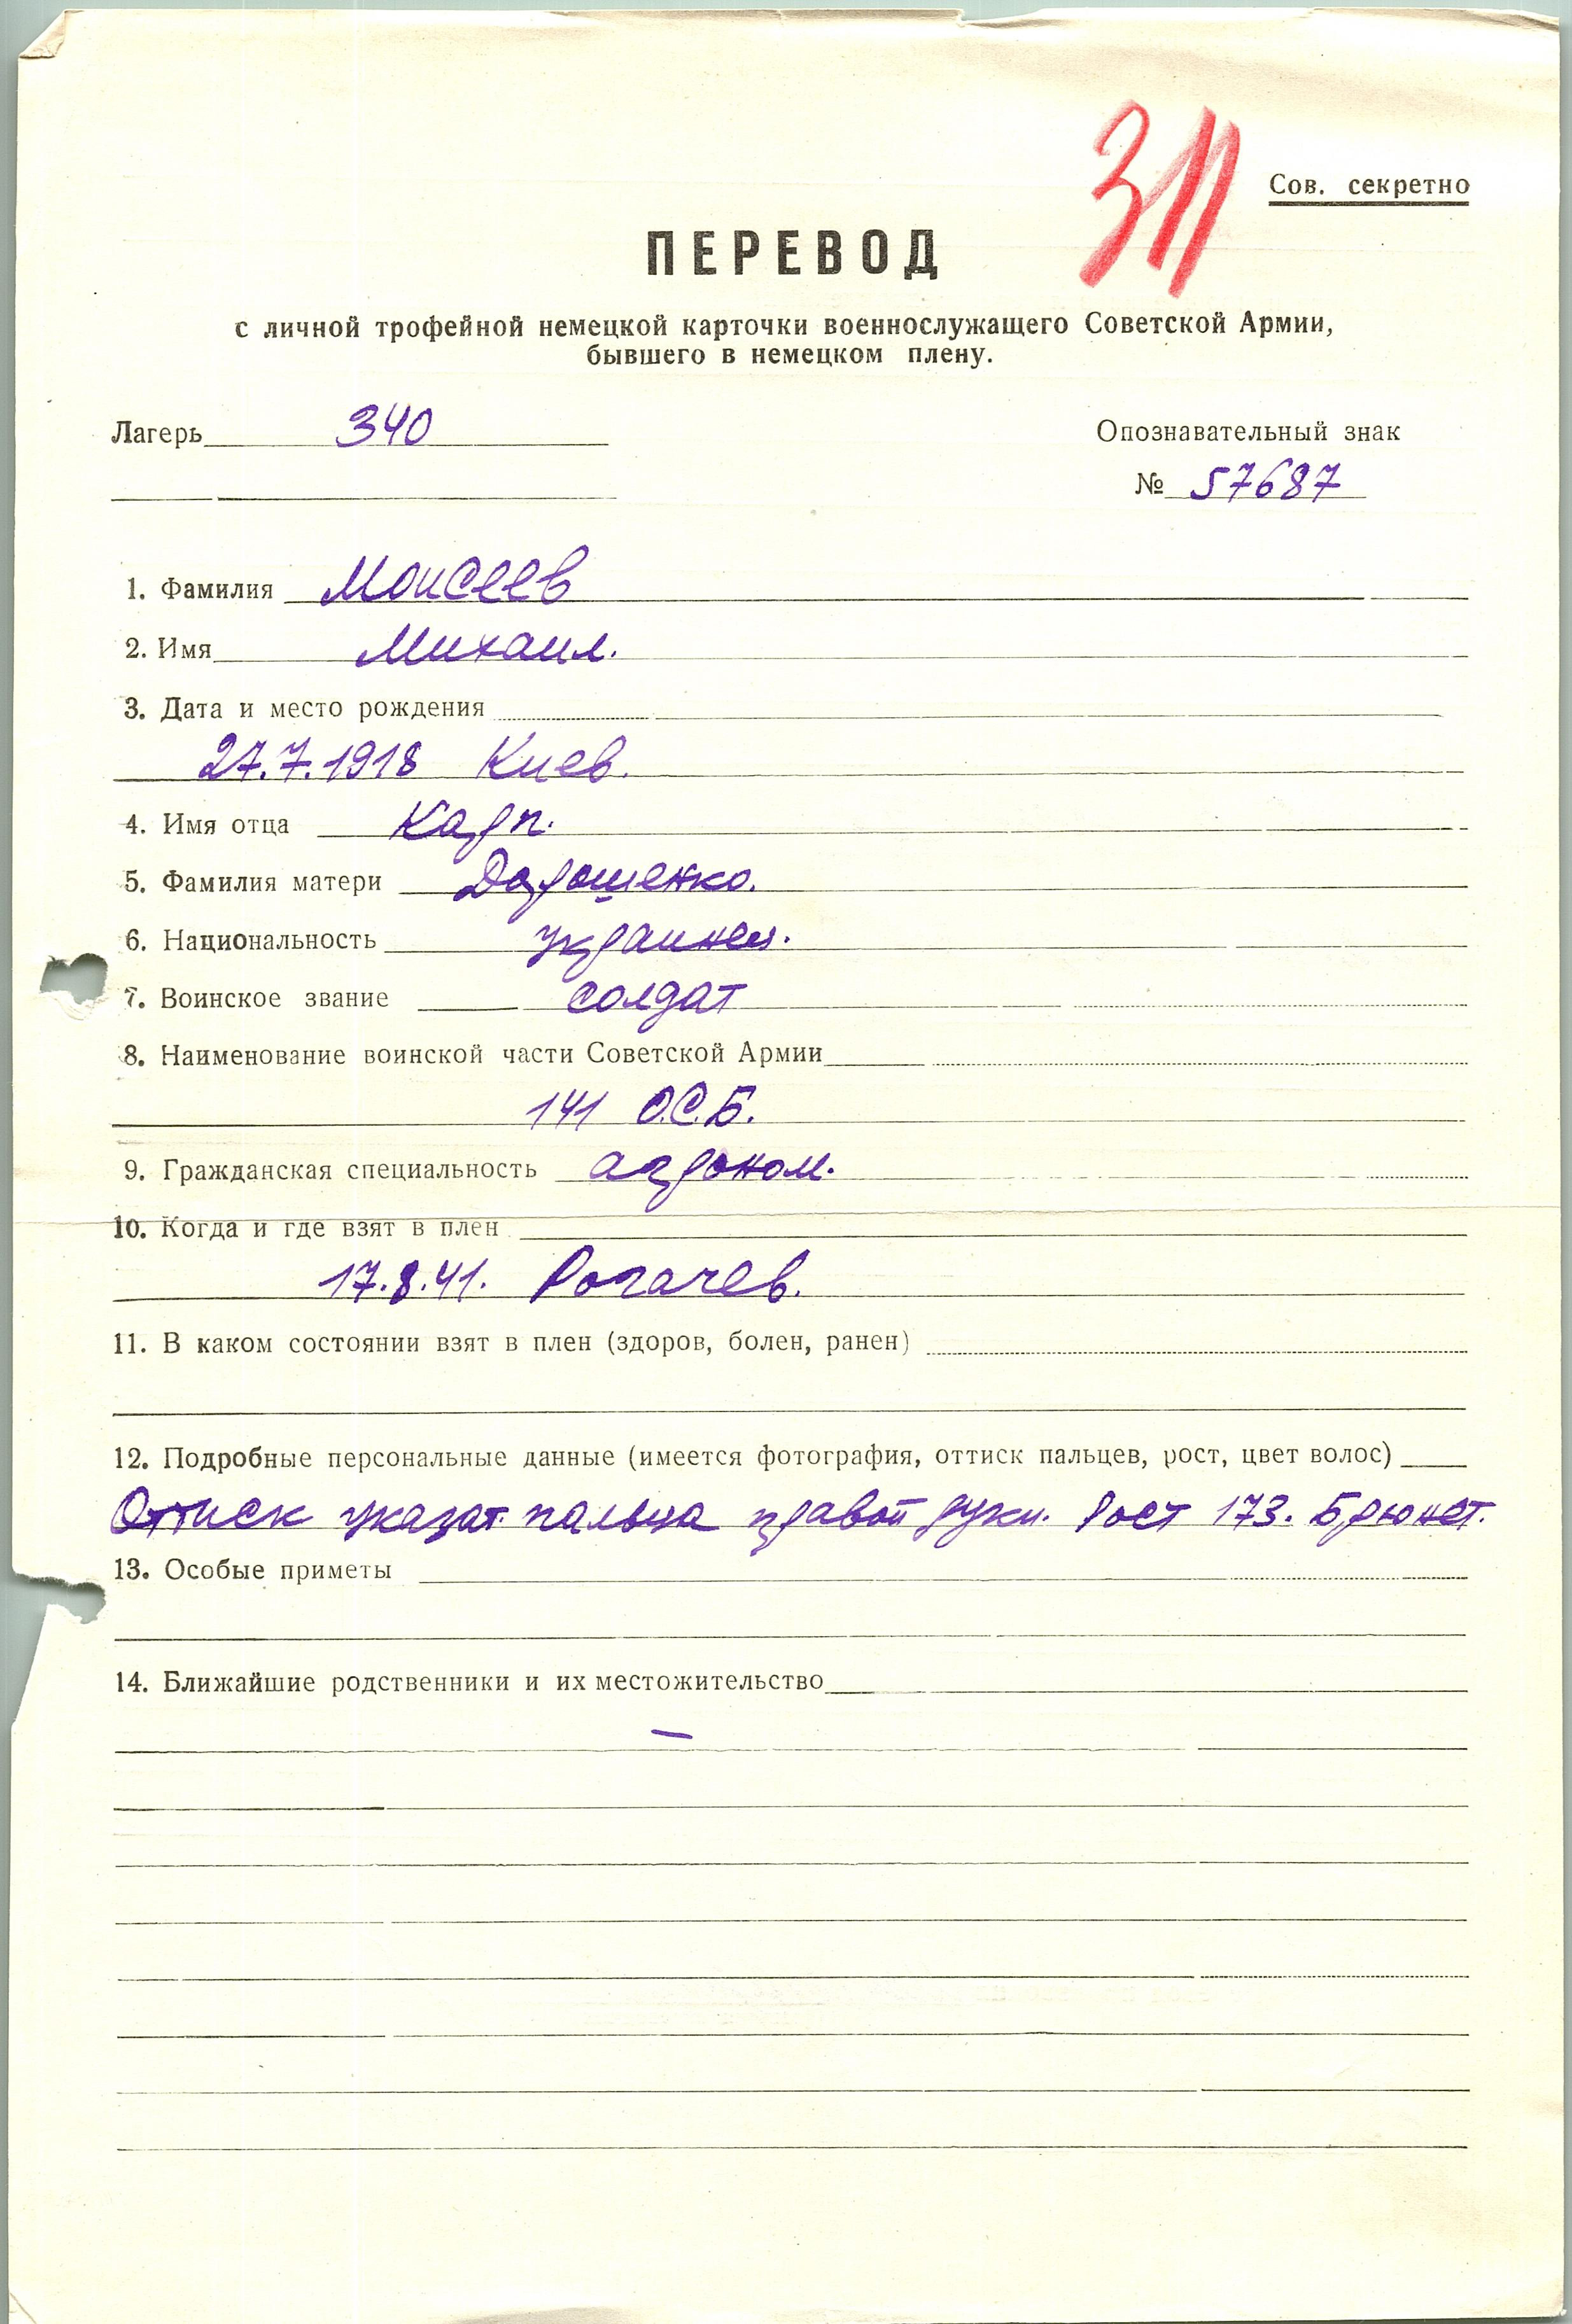 311
Сов. секретно
ПЕРЕВОД
с личной трофейной немецкой карточки военнослужащего Советской Армии,
бывшего в немецком плену.
Лагерь 340
Опознавательный знак
№ 57687
1. Фамилия Моисеев
2. Имя Михаил.
3. Дата и место рождения
27.7.1918 Киев.
4. Имя отца Карп.
5. Фамилия матери Дорошенко.
6. Национальность украинец.
7. Воинское звание солдат
8. Наименование воинской части Советской Армии
141 О.С.Б.
9. Гражданская специальность агроном.
10. Когда и где взят в плен
17.8.41. Рогачев.
11. В каком состоянии взят в плен (здоров, болен, ранен)
12. Подробные персональные данные (имеется фотография, оттиск пальцев, рост, цвет волос)
Оттиск указат. пальца правой руки. Рост 173. Брюнет.
13. Особые приметы
14. Ближайшие родственники и их местожительство
—